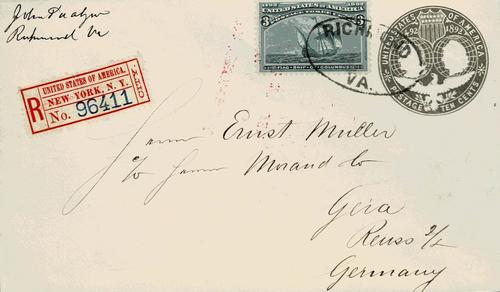 John
Richmond Va
1492 UNITED STATES OF AMERICA 1892
3 3
FLAG-SHIP OF COLUMBUS
RICHMOND
VA.
UNITED STATES OF AMERICA
1492 1892
POSTAGE TEN CENTS
R
UNITED STATES OF AMERICA.
NEW-YORK, N.Y.
No. 96411
Herrn Ernst Müller
c/o Herren Morand Co
Gera
Reuss j/L
Germany